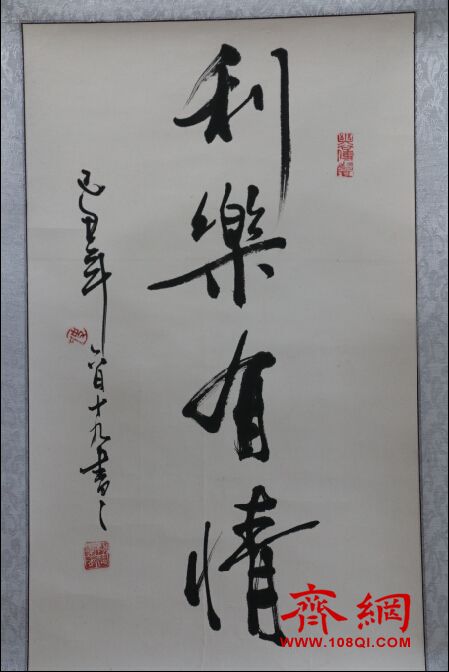 利樂有情
己丑年
六月十九書之
齊網
WWW.108QI.COM